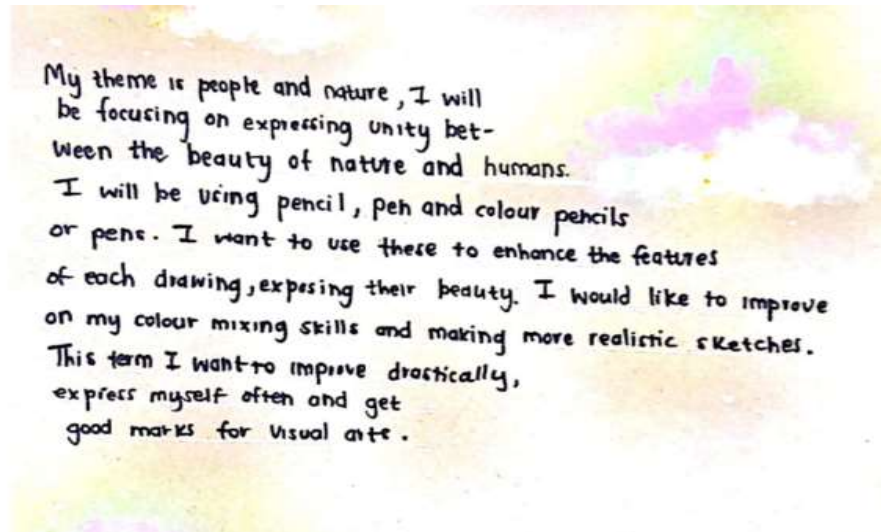 My theme is people and nature, I will
be focusing on expressing unity bet-
ween the beauty of nature and humans.
I will be using pencil, pen and colour pencils
or pens. I want to use these to enhance the features
of each drawing, exposing their beauty. I would like to improve
on my colour mixing skills and making more realistic sketches.
This term I want to improve drastically,
express myself often and get
good marks for visual arts.